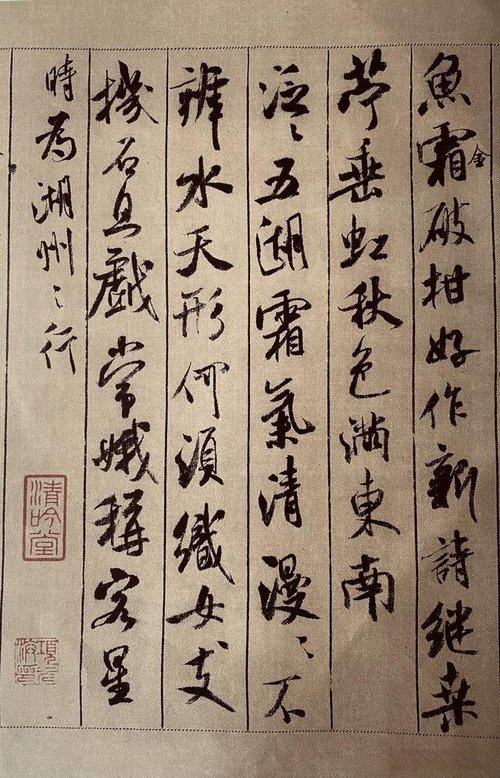 魚霜金破柑好作新詩繼桑
苧垂虹秋色滿東南
泛〻五湖霜氣清漫〻不
辨水天形何須織女支
機石且戲常娥稱客星
時為湖州之行
清吟堂